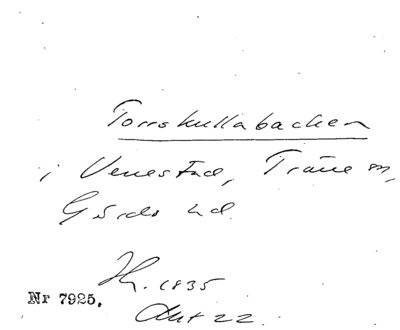 Torrskullabacken
i Venestad, Träne sn,
Gärds hd.
H. 1835
Nr 7925.
Akt 22.